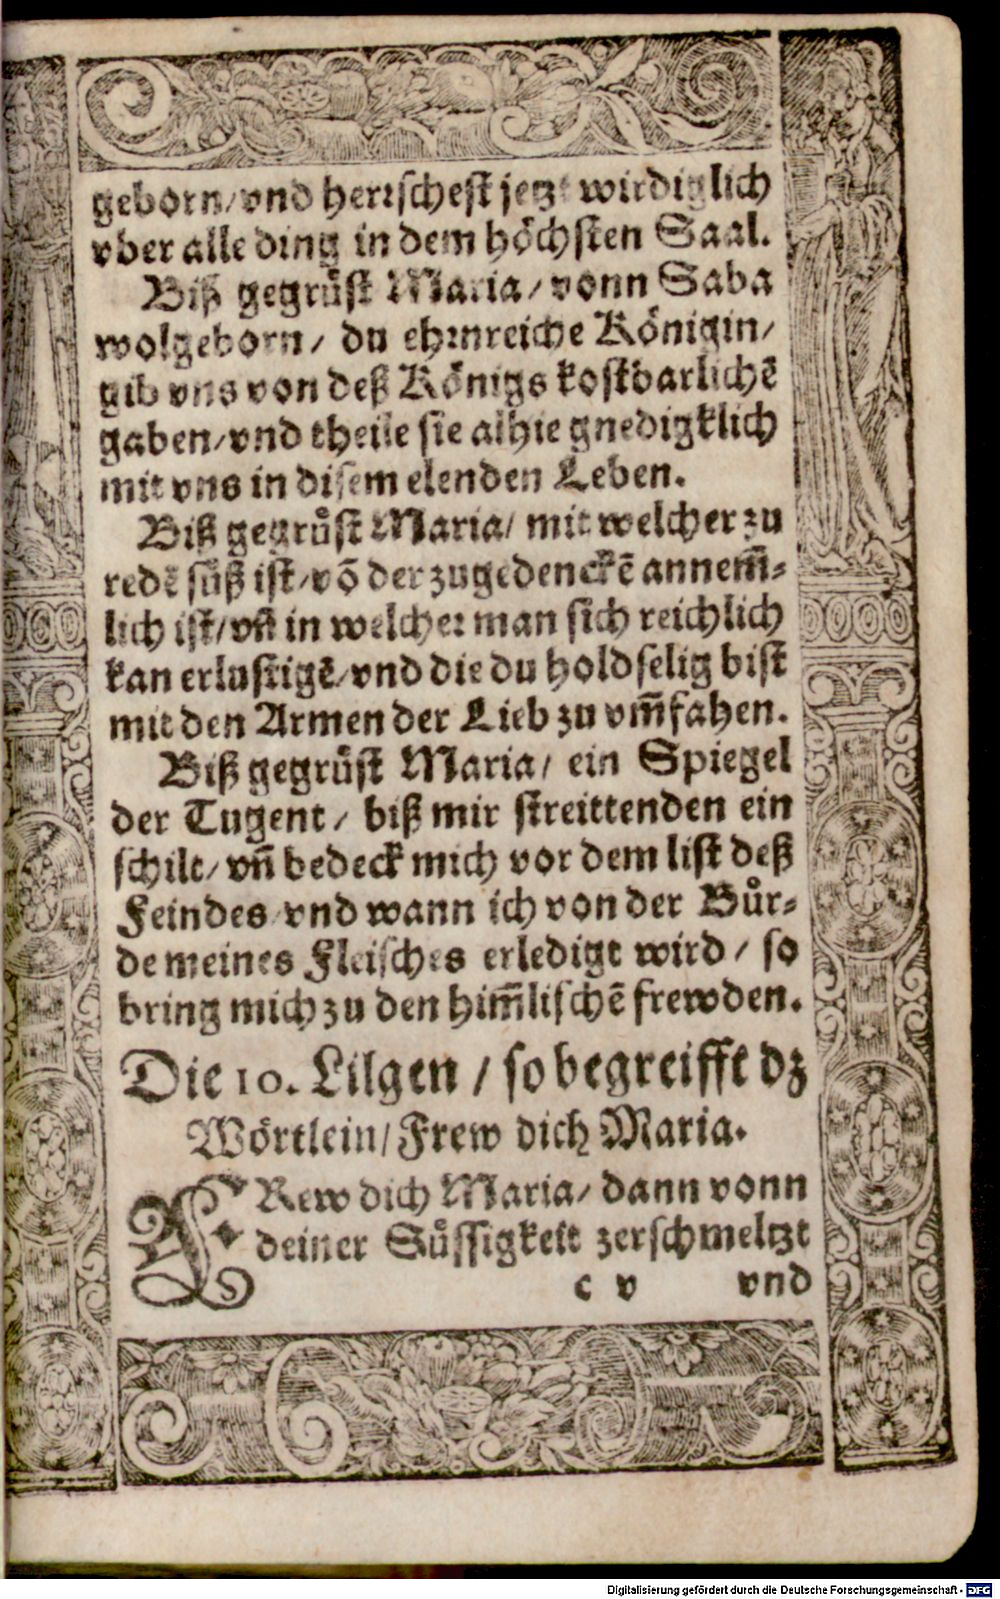 geborn/vnd herrschest jetzt wirdiglich
vber alle ding in dem höchsten Saal.
Biß gegrůst Maria/ vonn Saba
wolgeborn/ du ehrnreiche Königin/
gib vns von deß Königs kostbarlichẽ
gaben/vnd theile sie alhie gnedigklich
mit vns in disem elenden Leben.
Biß gegrůst Maria/ mit welcher zu
redẽ sůß ist/võ der zugedenckẽ annem̃-
lich ist/vñ in welcher man sich reichlich
kan erlustigẽ/vnd die du holdselig bist
mit den Armen der Lieb zu vm̃fahen.
Biß gegrůst Maria/ ein Spiegel
der Tugent/ biß mir streittenden ein
schilt/vñ bedeck mich vor dem list deß
Feindes/vnd wann ich von der Bůr-
de meines Fleisches erledigt wird/ so
bring mich zu den him̃lischẽ frewden.
Die 10. Lilgen/ so begreifft dz
Wörtlein/Frew dich Maria.
FRew dich Maria/ dann vonn
deiner Sůssigkeit zerschmeltzt
c v vnd
Digitalisierung gefördert durch die Deutsche Forschungsgemeinschaft - DFG